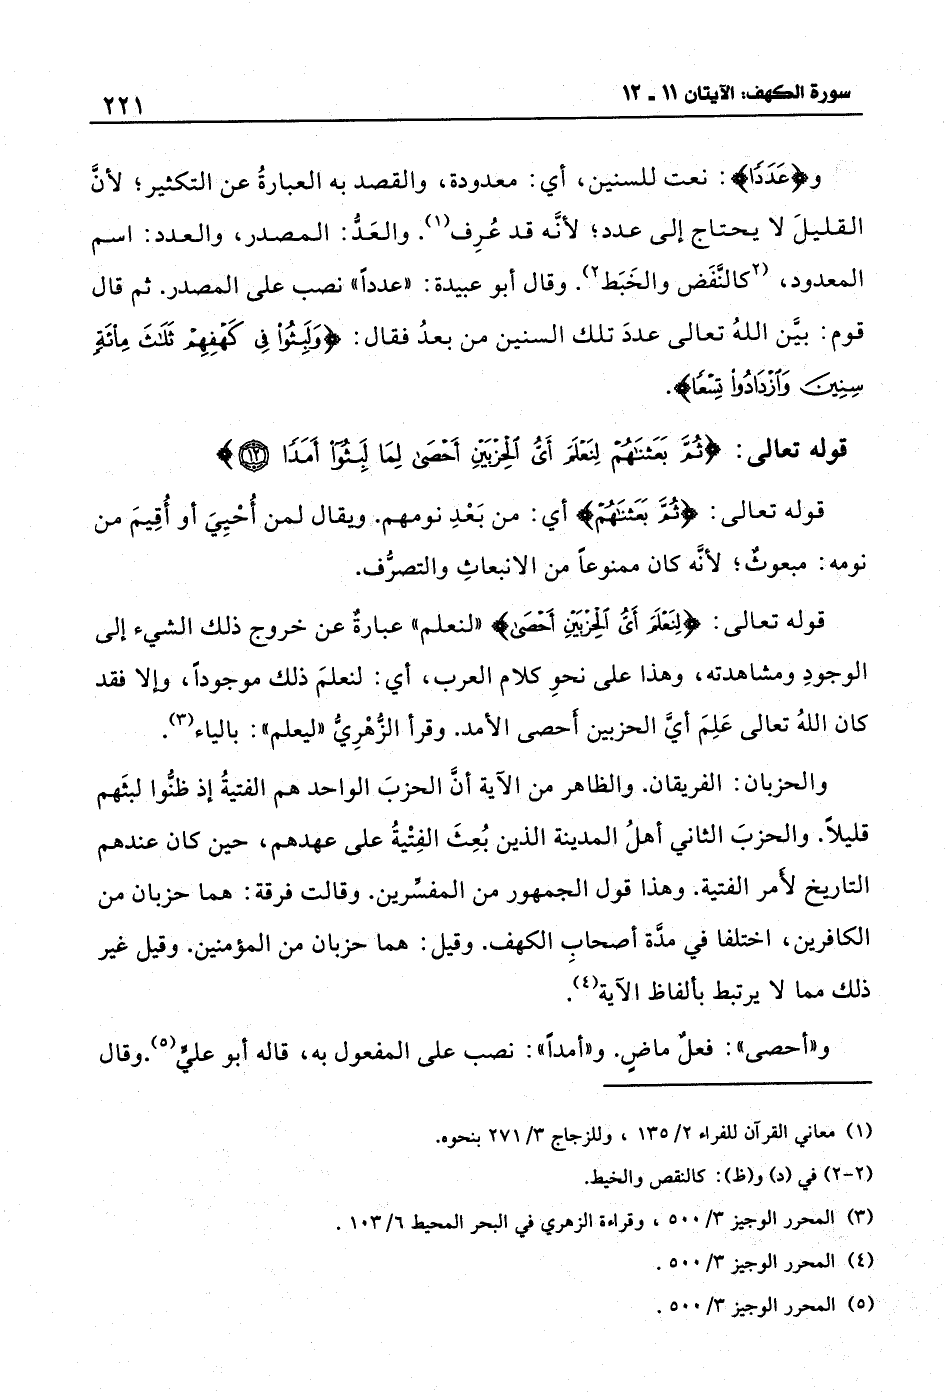 سورة الكهف: الآيتان ١١ ـ ١٢
٢٢١
و﴿عَدَدًا﴾: نعت للسنين، أي: معدودة، والقصد به العبارةُ عن التكثير؛ لأنَّ
القليلَ لا يحتاج إلى عدد؛ لأنَّه قد عُرِف(١). والعَدُّ: المصدر، والعدد: اسم
المعدود، (٢كالنَّفَض والخَبَط٢). وقال أبو عبيدة: «عدداً» نصب على المصدر. ثم قال
قوم: بيَّن اللهُ تعالى عددَ تلك السنين من بعدُ فقال: ﴿وَلَبِثُوا۟ فِى كَهْفِهِمْ ثَلَٰثَ مِا۟ئَةٍ
سِنِينَ وَٱزْدَادُوا۟ تِسْعًا﴾.
قوله تعالى: ﴿ثُمَّ بَعَثْنَٰهُمْ لِنَعْلَمَ أَىُّ ٱلْحِزْبَيْنِ أَحْصَىٰ لِمَا لَبِثُوٓا۟ أَمَدًا ١٢﴾
قوله تعالى: ﴿ثُمَّ بَعَثْنَٰهُمْ﴾ أي: من بَعْدِ نومهم. ويقال لمن أُحْيِيَ أو أُقِيمَ من
نومه: مبعوثٌ؛ لأنَّه كان ممنوعاً من الانبعاثِ والتصرُّف.
قوله تعالى: ﴿لِنَعْلَمَ أَىُّ ٱلْحِزْبَيْنِ أَحْصَىٰ﴾ «لنعلم» عبارةٌ عن خروج ذلك الشيء إلى
الوجودِ ومشاهدته، وهذا على نحوِ كلام العرب، أي: لنعلمَ ذلك موجوداً، وإلا فقد
كان اللهُ تعالى عَلِمَ أيَّ الحزبين أَحصى الأمد. وقرأ الزُّهْرِيُّ «ليعلم»: بالياء(٣).
والحزبان: الفريقان. والظاهر من الآية أنَّ الحزبَ الواحد هم الفتيةُ إذ ظنُّوا لبثَهم
قليلاً. والحزبَ الثاني أهلُ المدينة الذين بُعِثَ الفِتْيةُ على عهدهم، حين كان عندهم
التاريخ لأَمر الفتية. وهذا قول الجمهور من المفسِّرين. وقالت فرقة: هما حزبان من
الكافرين، اختلفا في مدَّة أصحابِ الكهف. وقيل: هما حزبان من المؤمنين. وقيل غير
ذلك مما لا يرتبط بألفاظ الآية(٤).
و«أحصى»: فعلٌ ماضٍ. و«أمداً»: نصب على المفعول به، قاله أبو عليٍّ(٥).وقال
(١) معاني القرآن للفراء ٢/ ١٣٥ ، وللزجاج ٣/ ٢٧١ بنحوه.
(٢-٢) في (د) و(ظ): كالنقص والخيط.
(٣) المحرر الوجيز ٣/ ٥٠٠ ، وقراءة الزهري في البحر المحيط ٦/ ١٠٣ .
(٤) المحرر الوجيز ٣/ ٥٠٠ .
(٥) المحرر الوجيز ٣/ ٥٠٠ .